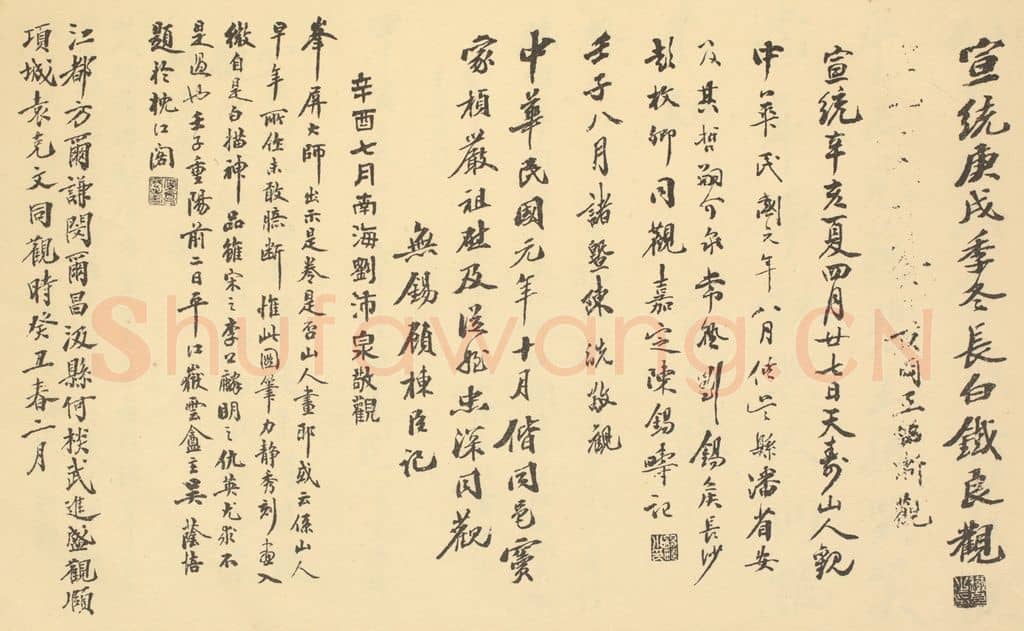 宣統庚戌季冬長白鐵良觀
同王 觀
宣統辛亥夏四月廿七日天壽山人觀
中華民國元年八月 縣潘省安
及其哲嗣介泉常 劉錫侯長沙
彭枚卿同觀嘉定陳錫疇記
壬子八月諸暨陳洗敬觀
中華民國元年十月偕同邑竇
家楨嚴祖 及 忠深同觀
無錫顧棟臣記
辛酉七月南海劉沛泉敬觀
峯屏大師出示是卷是否山人畫耶或云係山人
早年所作未敢臆斷惟此圖筆力靜秀刻畫入
微自是白描神品雖宋之李公麟明之仇英尤求不
是過也壬子重陽前二日平江嶽雲盦主吳蔭培
題於枕江閣
江都方爾謙閔爾昌汲縣何棪武進盛觀頤
項城袁克文同觀時癸丑春二月
Shufawang.CN